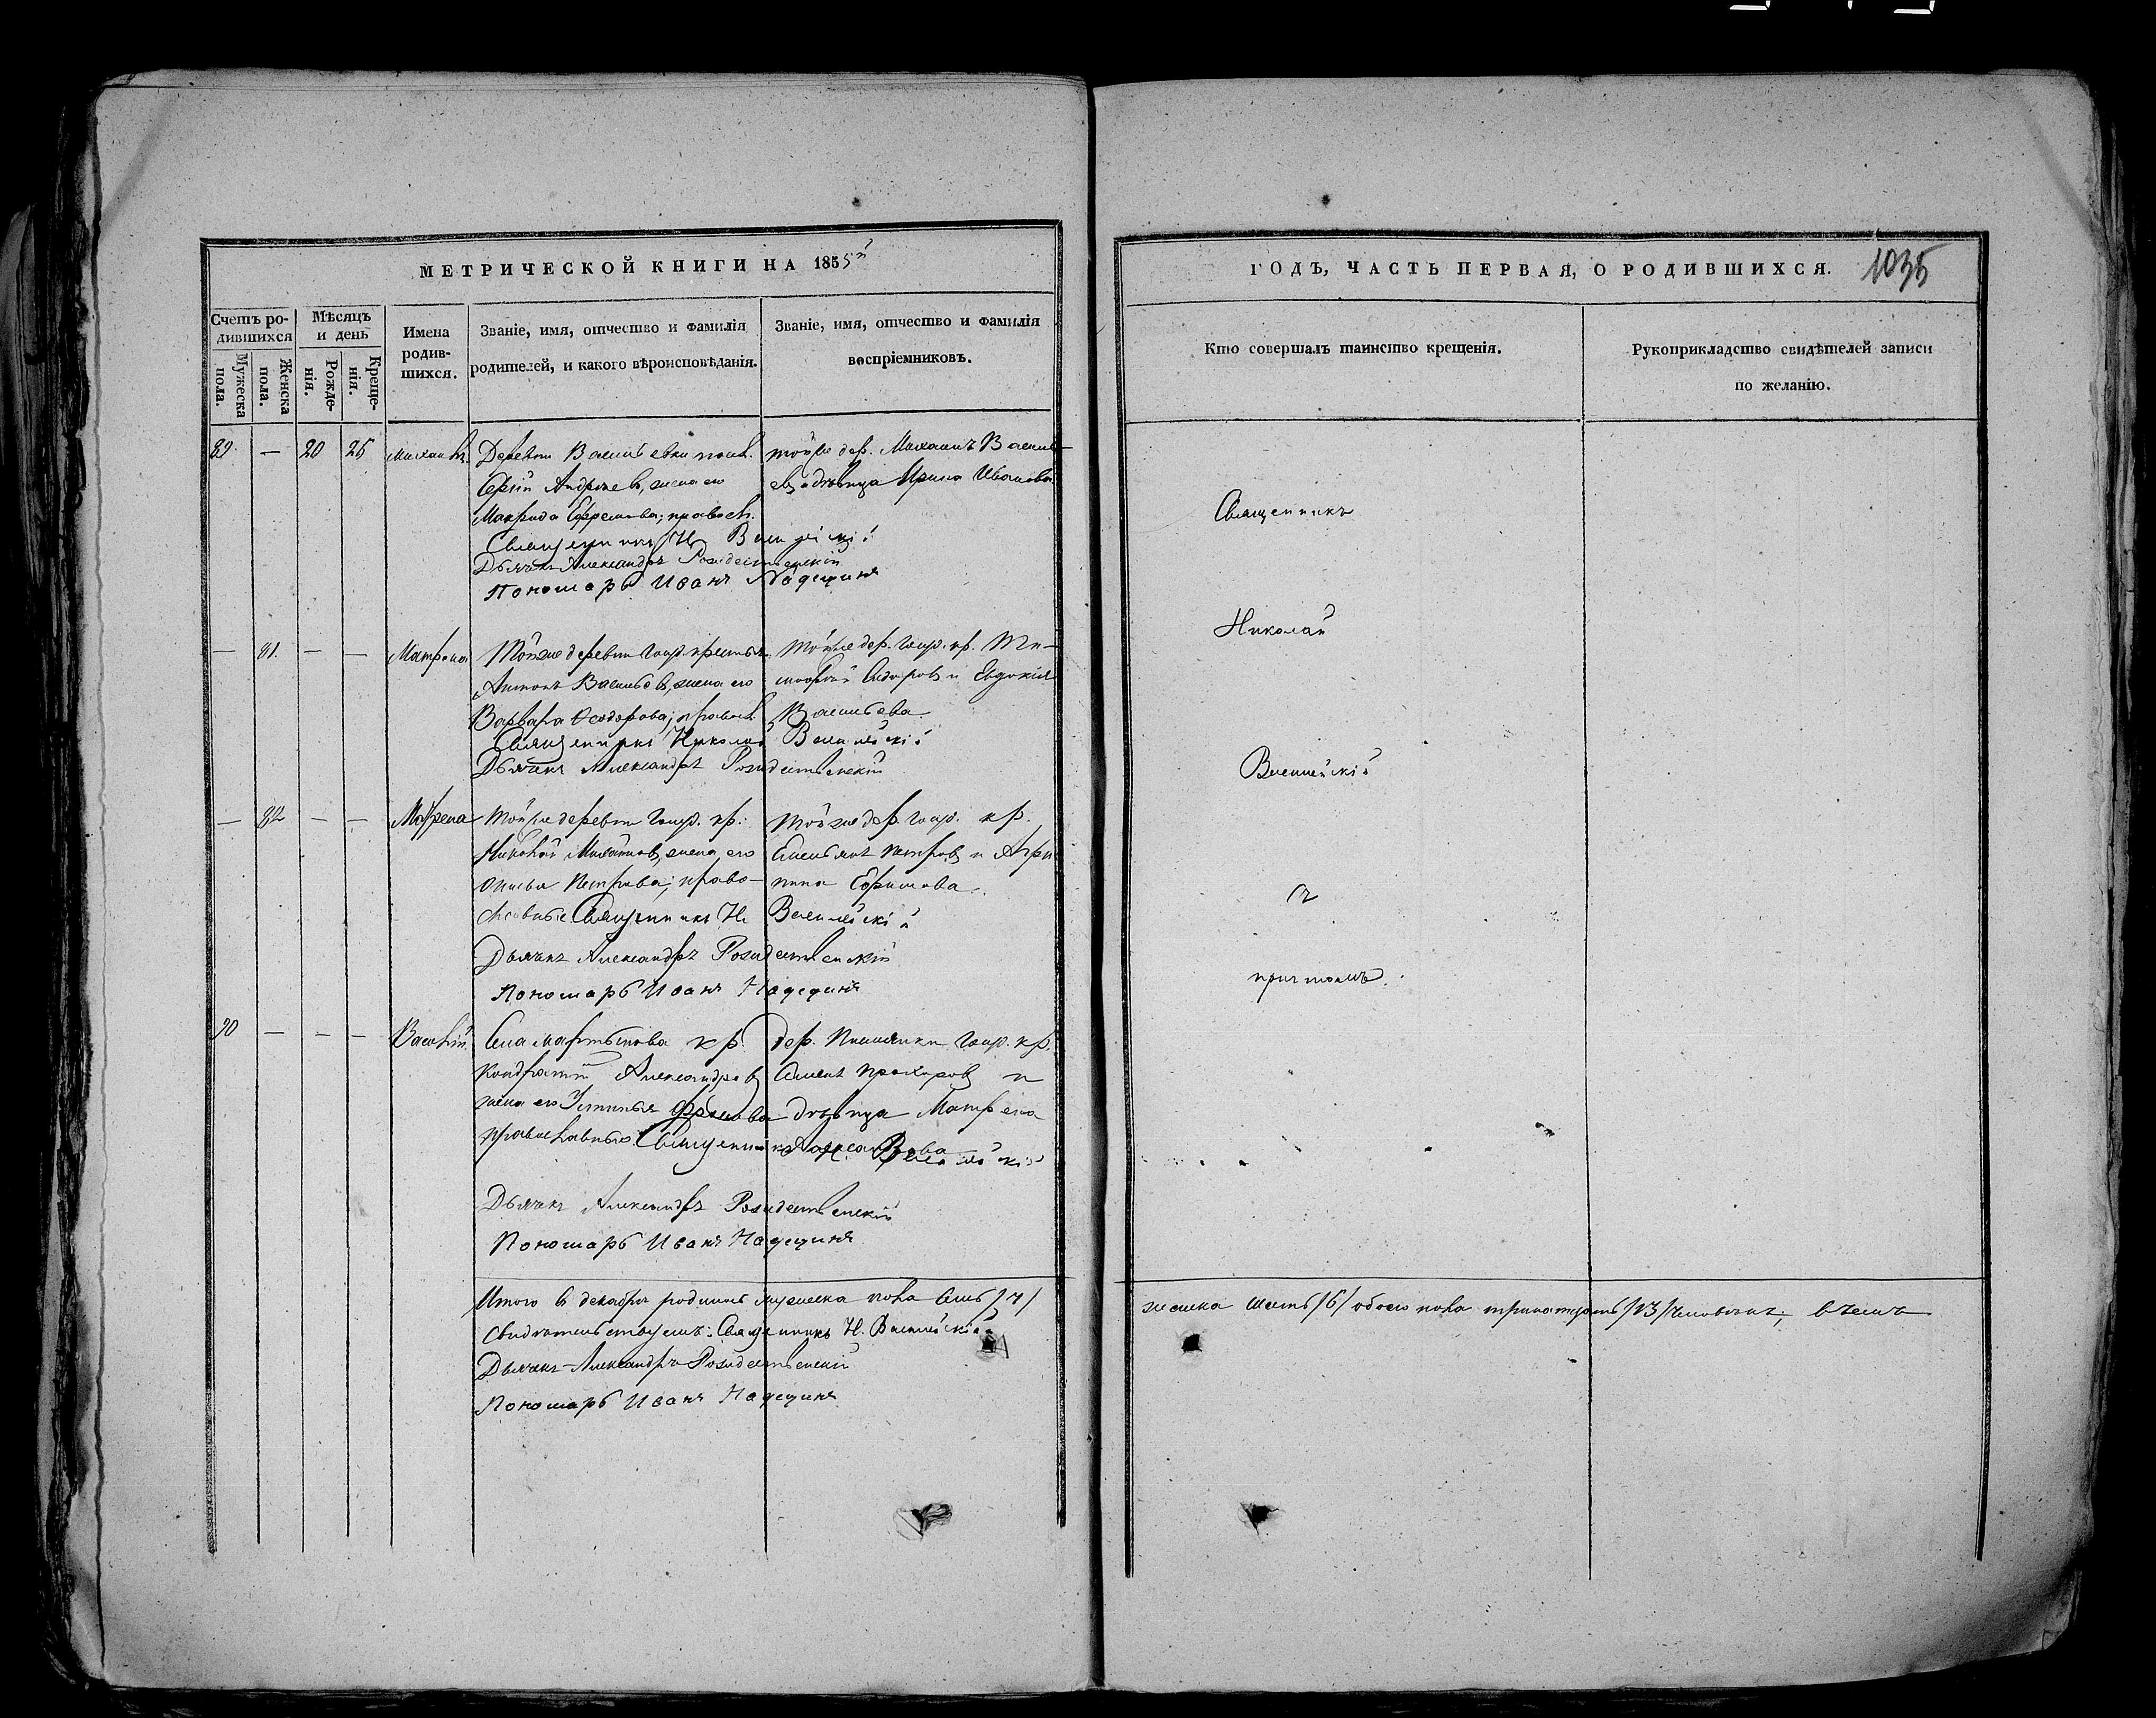 МЕТРИЧЕСКОЙ КНИГИ НА 1855й
Счетъ родившихся
Мужеска пола.
Женска пола.
Мѣсяцъ и день
Рожденія.
Крещенія.
Имена родившихся.
Званіе, имя, отчество и фамилія
родителей, и какого вѣроисповѣданія.
Званіе, имя, отчество и фамилія
воспріемниковъ.
89 — 20 25 Михаилъ Деревни Васильевки
Сергій Андреевъ, жена его
Макрида Ефремова; правосл.
тойже дер. Михаилъ Василь-
евъ и дѣвица Ирина Иванова
Священникъ Н. Виш
Дьячекъ Александръ Рождественскій
Пономарь Иванъ Надеждинъ
— 81. — — Матрона Тойже деревни Госуд. крестьян.
Антонъ Васильевъ, жена его
Варвара Ѳеодорова; правосл.
Тойже дер. Госуд. кр. Ти-
моѳей Сидоровъ и Евдокія
Васильева
Священникъ Николай
Дьячекъ Александръ Рождественскій
— 82 — — Тойже деревни Госуд. кр.
Николай Михайловъ, жена его
Петрова; право-
славные
Тойже дер. Госуд. кр.
Емельянъ Петровъ и Агри-
пина Ефимова
Священникъ Н.
Дьячекъ Александръ Рождественскій
Пономарь Иванъ Надеждинъ
90 — — — Василій Села Мартынова кр.
Кондратій Александровъ
жена его Устинья
православные
дер. Госуд. кр.
Прохоровъ и
дѣвица Матрена
Священникъ Н.
Дьячекъ Александръ Рождественскій
Пономарь Иванъ Надеждинъ
Итого в декабрѣ родилось мужеска пола семь /7/
Свидѣтельствуемъ: Священникъ Н.
Дьячекъ Александръ Рождественскій
Пономарь Иванъ Надеждинъ
ГОДЪ, ЧАСТЬ ПЕРВАЯ, О РОДИВШИХСЯ.
1035
Кто совершалъ таинство крещенія.
Рукоприкладство свидѣтелей записи
по желанію.
Священникъ
Николай
съ
причтомъ.
женска шесть /6/ обоего пола тринадцать /13/ человѣкъ; въ чемъ